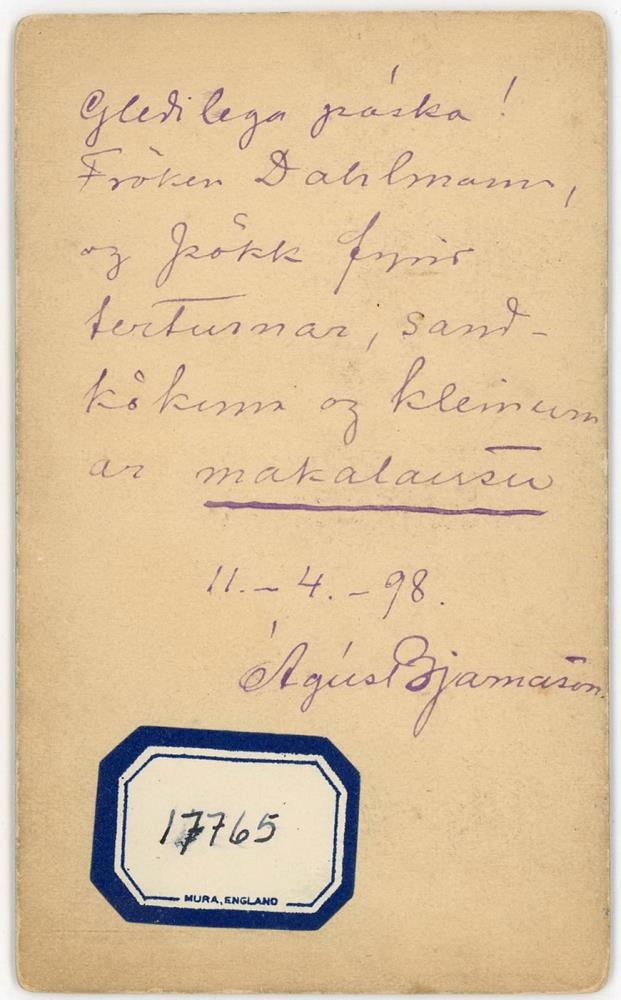 Gleðilega páska!
Fröken Dahlmann,
og þökk fyrir
terturnar, sand-
kökuna og kleinurn
ar makalausu
11. - 4. - 98.
Ágúst Bjarnason.
17765
MURA, ENGLAND